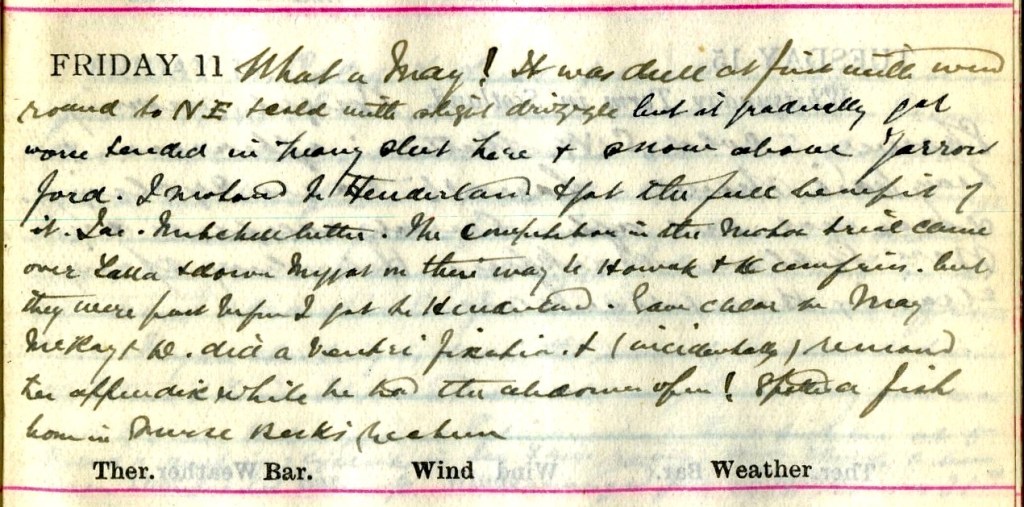 FRIDAY 11 What a May! It was dull at first with wind
round to NE & cold with slight drizzle but it gradually got
worse & ended in heavy sleet here & snow above Yarrow
ford. I motored to Henderland & got the full benefit of
it. Jas. Mitchell better. The competitors in the motor trial came
over & down on their way to Hawick & but
they were past before I got to Henderland. Gave chlor to May
McKay & K. did a ventri fixation & (incidentally) removed
her appendix while he had the abdomen open! Spotted a fish
bone in Nurse rectum
Ther. Bar. Wind Weather